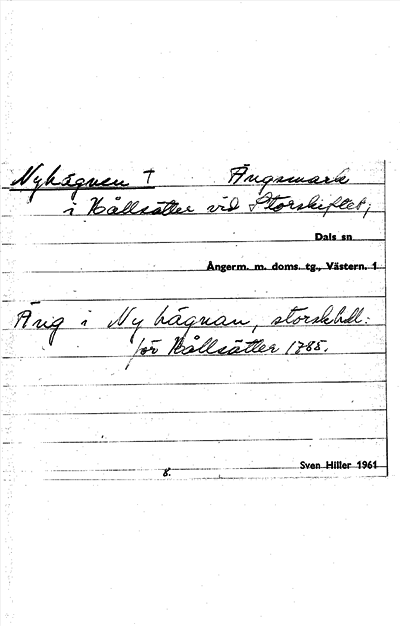 Nyhägnen † Ängsmark
i Hållsätter vid Storskiftet;
Dals sn
Ångerm. m. doms. tg., Västern. 1
Äng i Ny hägnan, storskhdl.
för Hållsätter 1785.
8.
Sven Hiller 1961